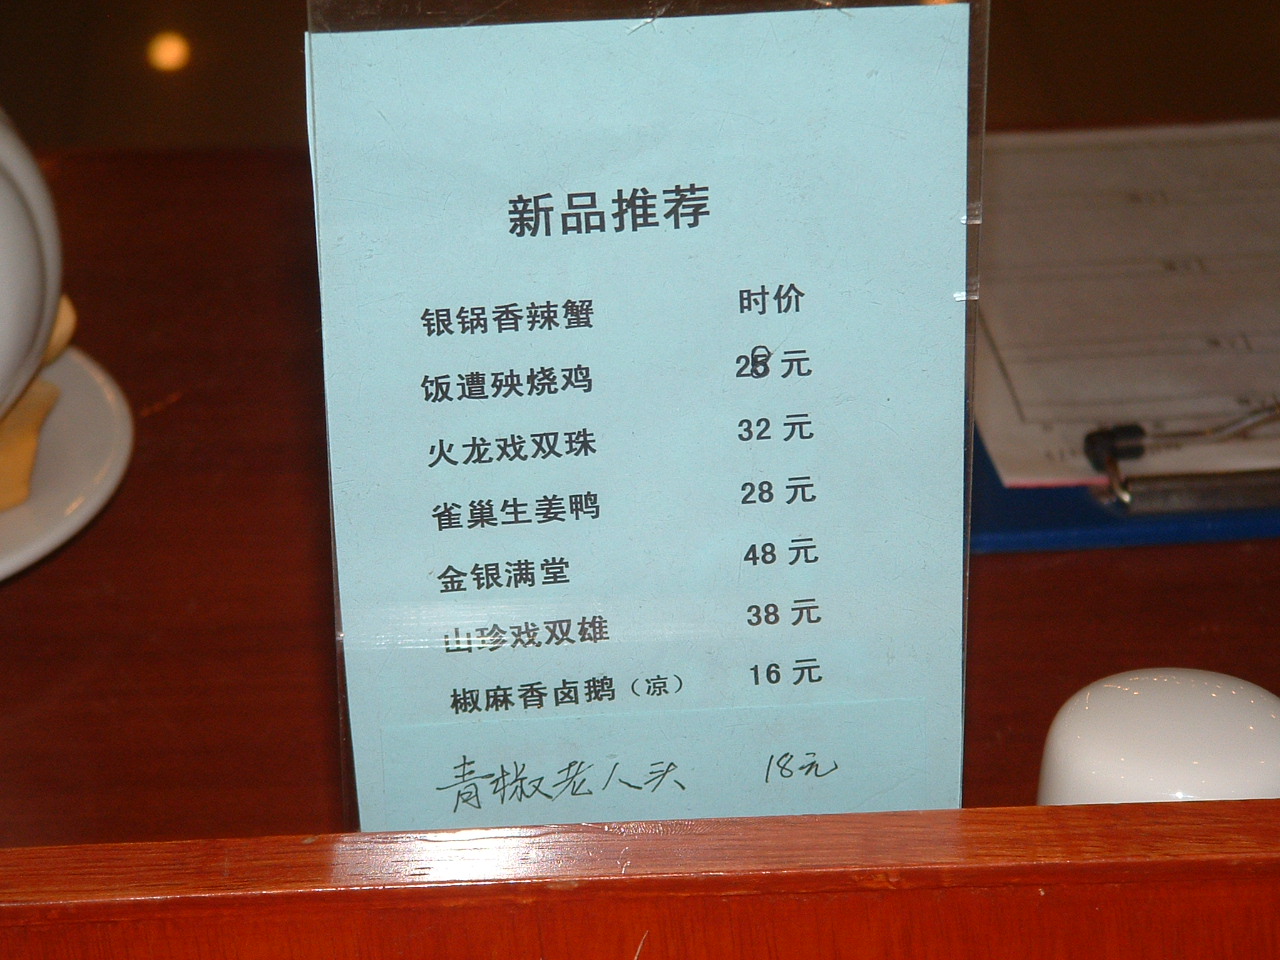 新品推荐
银锅香辣蟹 时价
饭遭殃烧鸡 28 元
火龙戏双珠 32 元
雀巢生姜鸭 28 元
金银满堂 48 元
山珍戏双雄 38 元
椒麻香卤鹅（凉） 16 元
青椒老人头 18元